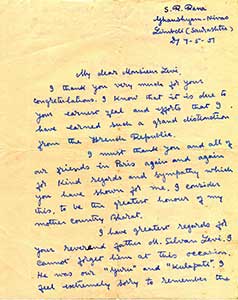 S. R. Rana
Ghanshyam-Nivas
Limbdi (Saurashtra)
D/ 7-5-51
My dear Monsieur Levi,
I thank you very much for your
congratulations. I know that it is due to
your earnest zeal and efforts that I
have earned such a grand distinction
from the French Republic.
I must thank you and all of
our friends in Paris again and again
for kind regards and sympathy which
you have shown for me. I consider
this, to be the greatest honour of my
mother country Bharat.
I have greatest regards for
your reverend father M. Silvan Levi. I
cannot forget him at this occasion.
He was our "Guru" and "Kulapati". I
feel extremely sorry to remember the